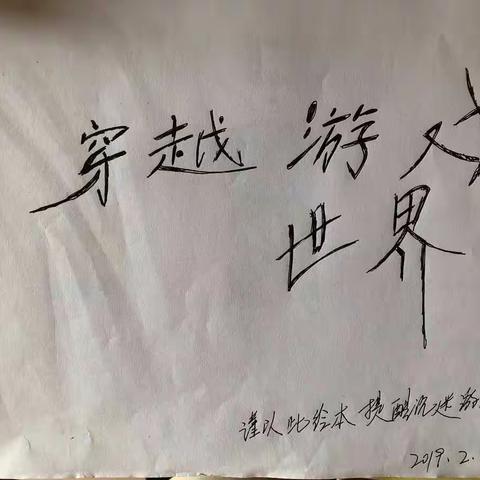 穿越游戏
世界
谨以此绘本提醒沉迷
2019.2.